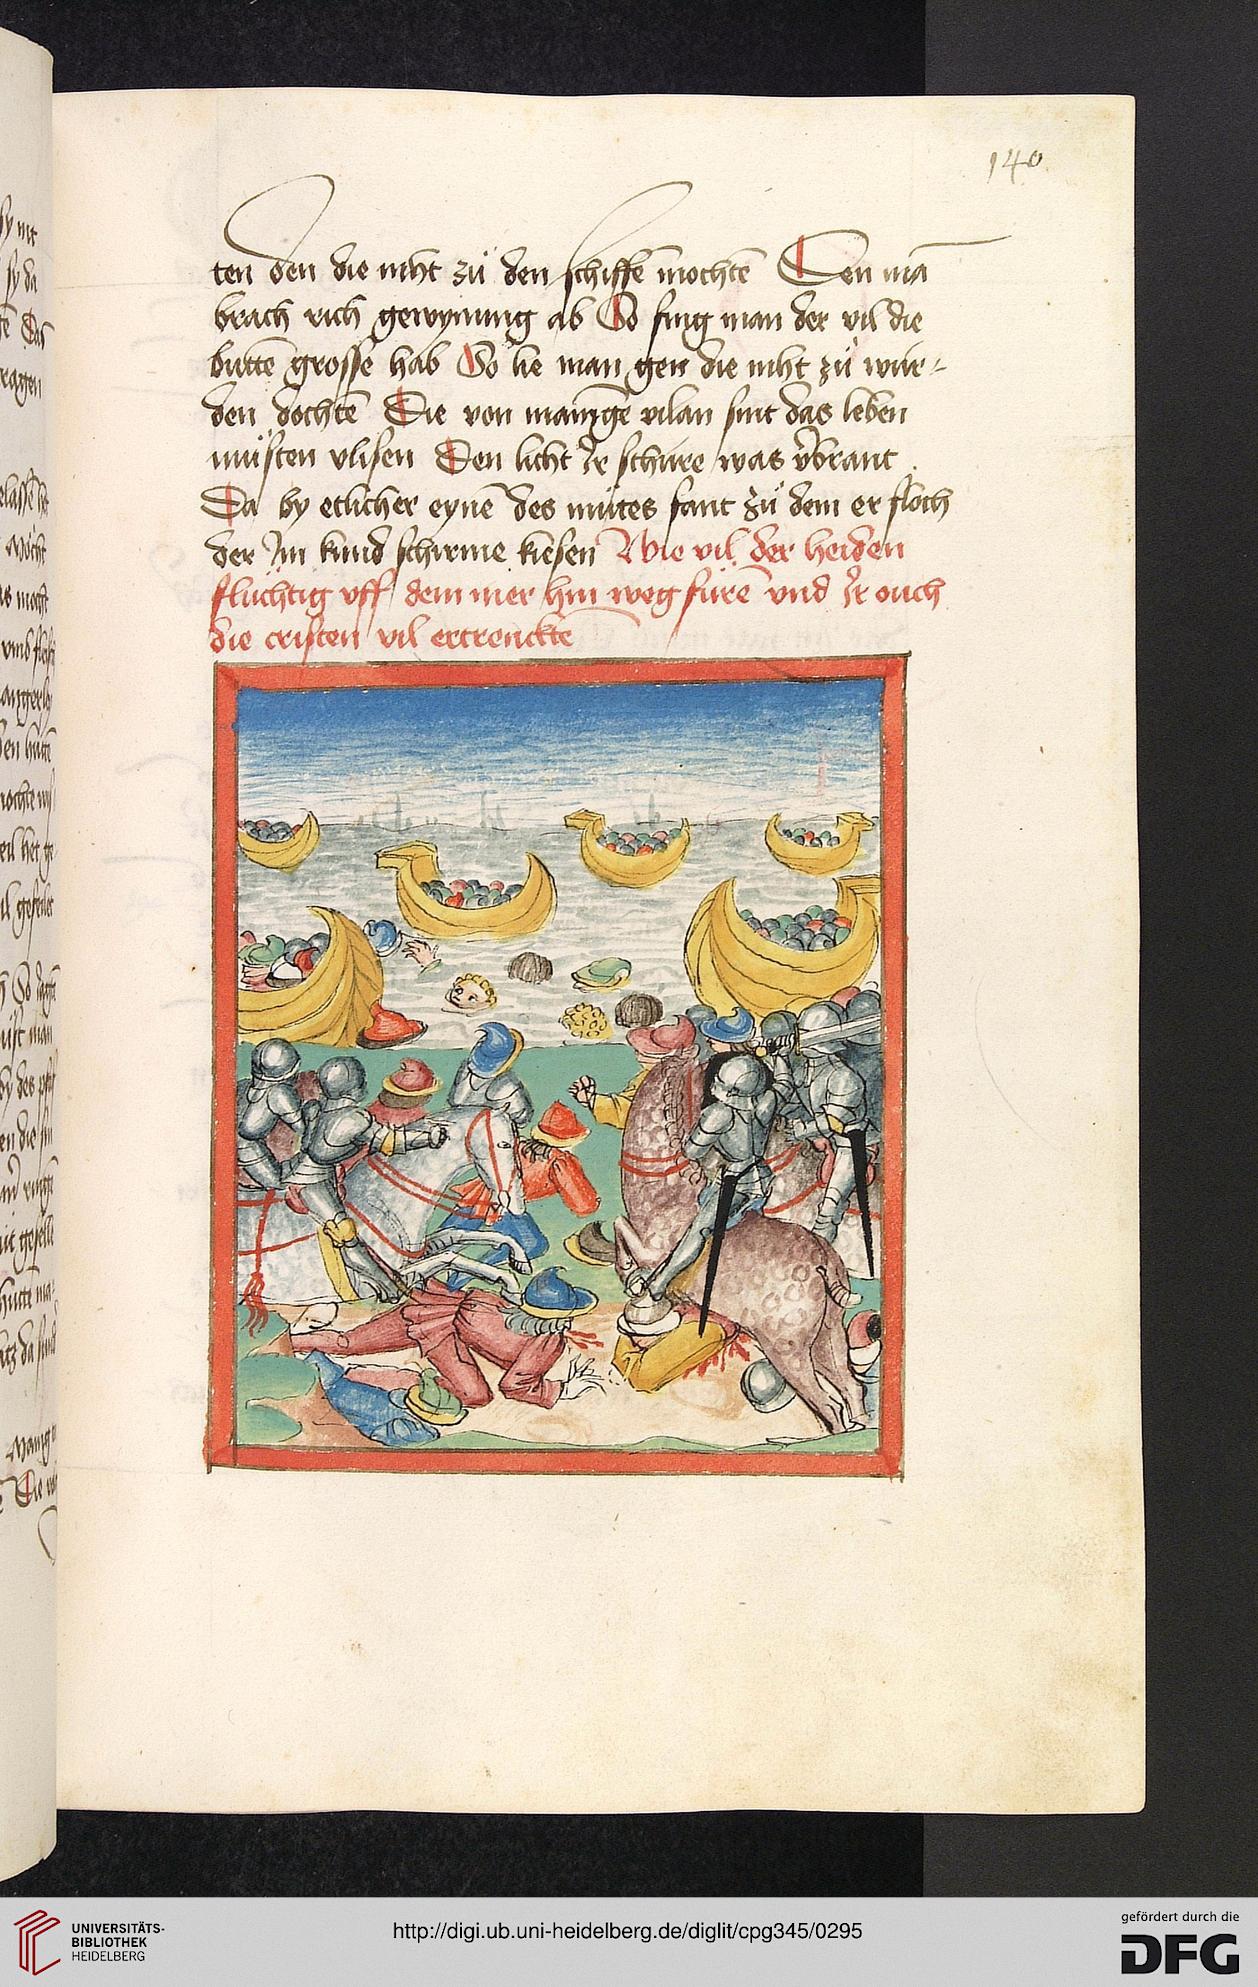 140
ten den die niht zü den schiffē mochtē Den mā
brach rich gewynung ab So fing man der vil die
buttē grosse hab So lie man gen die niht zü wur-
den dochtē Die von manigē vilan sint das leben
müsten vlisen Den licht Jr schüre was v̄brant
Da by etlicher eynē des mütes fant zü dem er floch
der Jm kund schirme kiesen Wie vil der heiden
fluchtig vff dem mer hin weg fürē vnd Jr ouch
die cristen vil ertrenckte
UNIVERSITÄTS-
BIBLIOTHEK
HEIDELBERG
http://digi.ub.uni-heidelberg.de/diglit/cpg345/0295
gefördert durch die
DFG